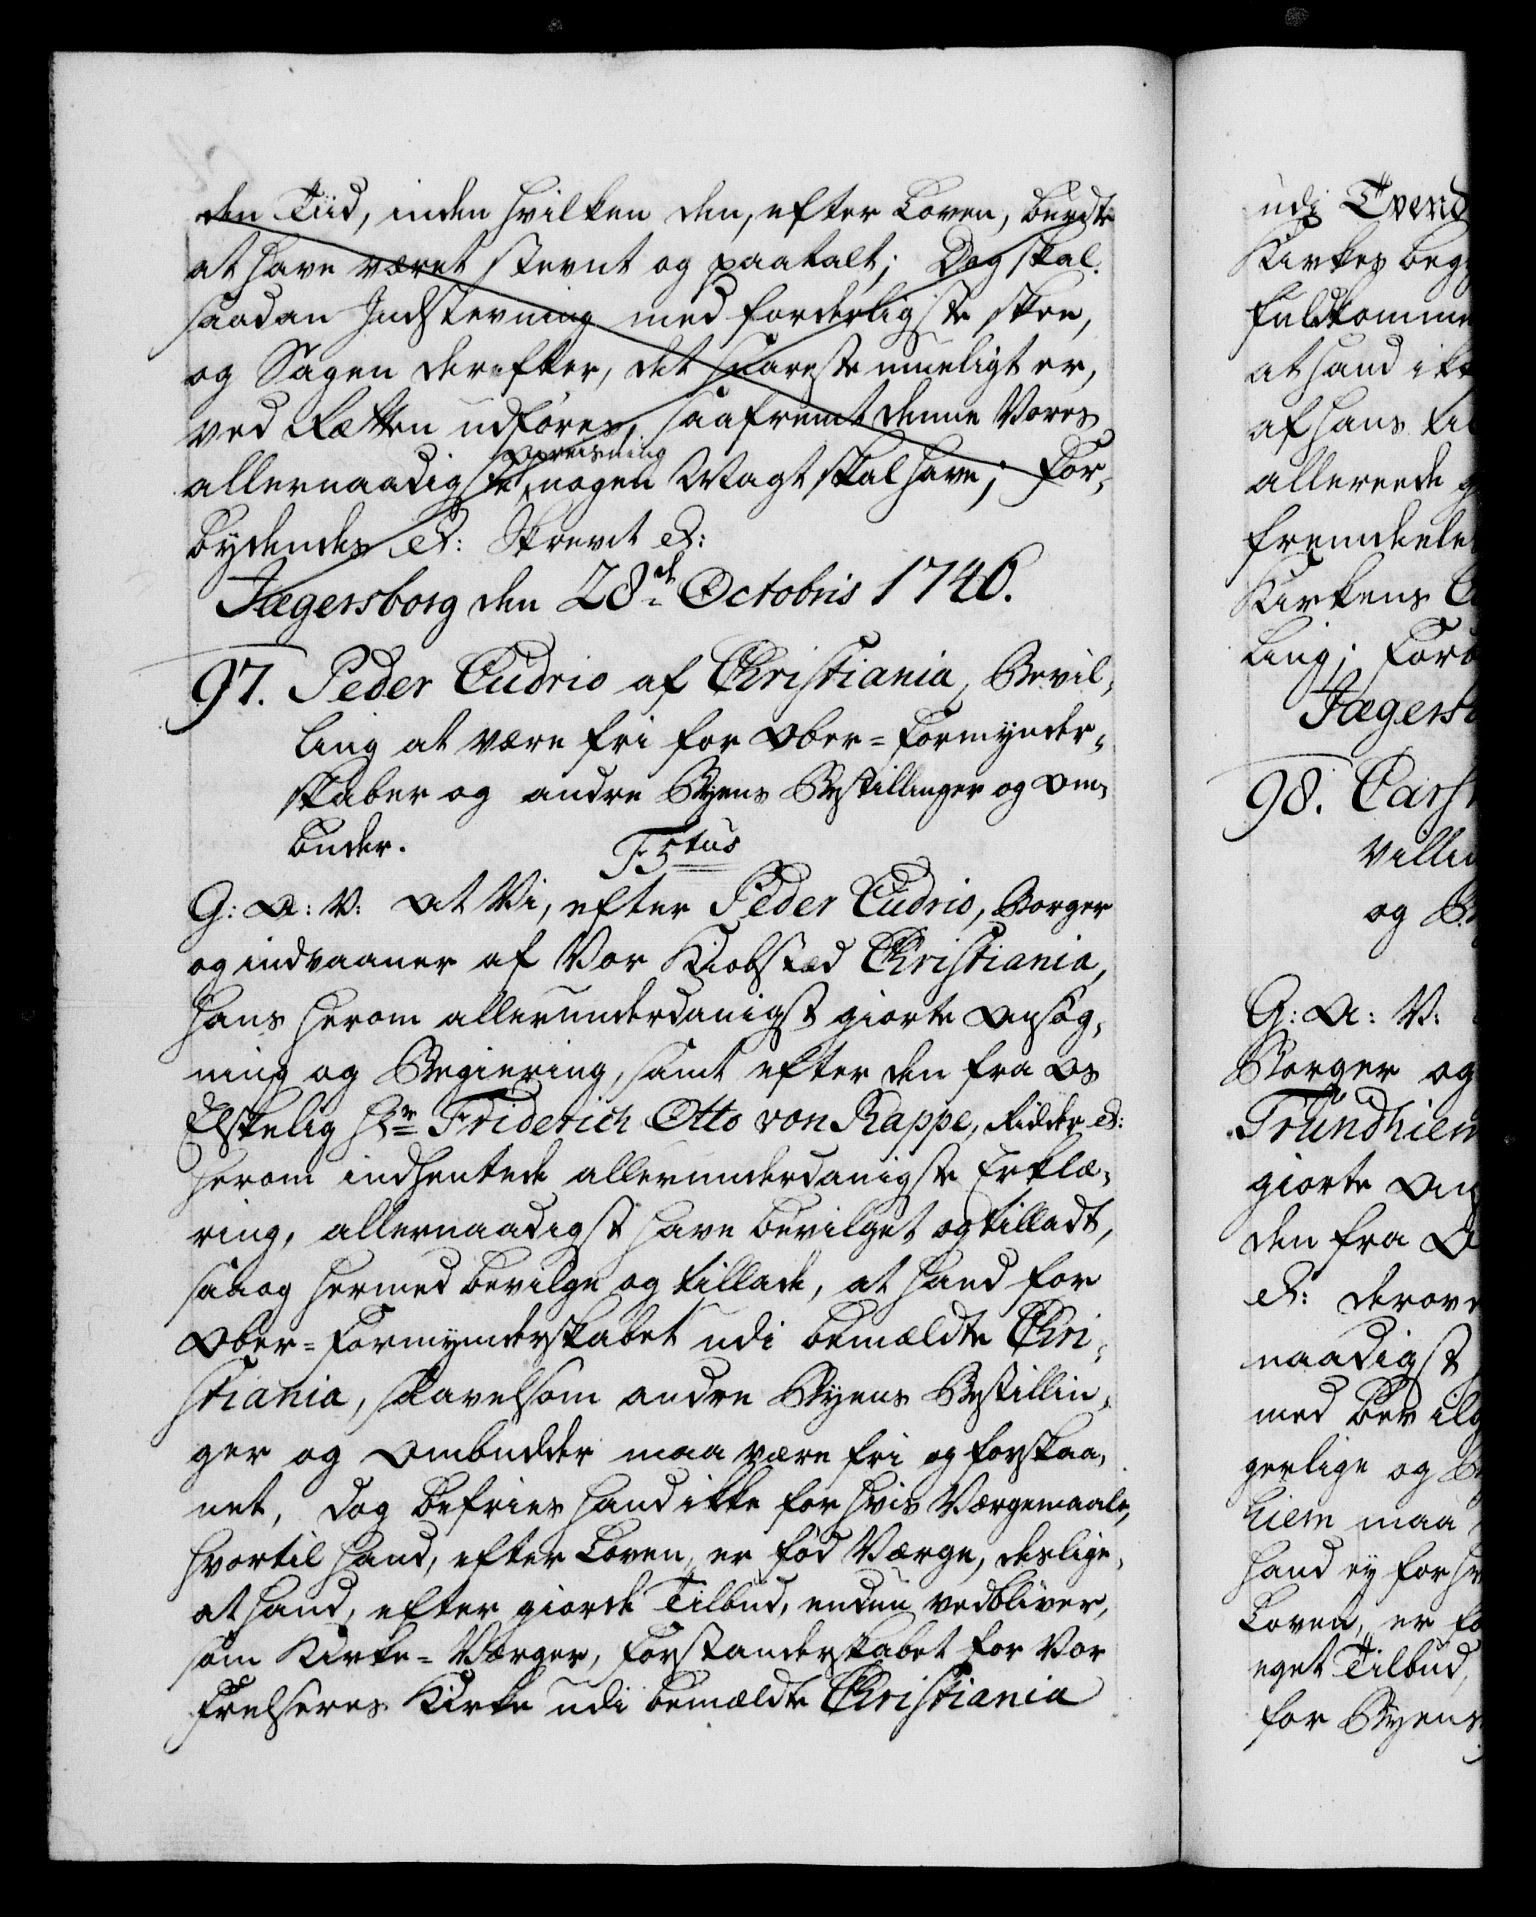 den Tiid, inden hvilken den, efter Loven, burdte
at have været stevnt og paatalt; Dog skal
saadan Indstevning med forderligste skee,
og Sagen derefter, det snareste mueligt er,
ved Retten udføres, saafremt denne Vores
opreisning
allernaadigste nogen Magt skal have; For-
bydendes &: Skrevet &:
Jægersborg den 28de Octobris 1746.
97. Peder Cudrio af Christiania, Bevil-
ling at være fri for Ober-Formynder-
skaber og andre Byens Bestillinger og Om-
buder.
F5tus
G: A: V: At Vi, efter Peder Cudrio, Borger
og indvaaner af Vor Kiobstæd Christiania,
hans herom allerunderdanigst giorte Ansøg-
ning og Begiering, samt efter den fra Os
Elskelig Hr Friderich Otto von Rappe, Ridder &:
herom indhentede allerunderdanigste Erklæ-
ring, allernaadigst have bevilget og tilladt,
saa og hermed bevilge og tillade, at hand for
Ober-Formynderskabet udi bemældte Chri-
stiania, saavelsom andre Byens Bestillin-
ger og Ombudder maa være fri og forskaa-
net, dog befries hand ikke for hvis Værgemaale,
hvortil hand, efter Loven, er fød Værge, deslige
at hand, efter giorde Tilbud, endnu vedbliver,
som Kirke-Værger, Forstanderskabet for Vor
Frelseres Kirke udi bemældte Christiania
udi Tvend
Kirkes beg
fuldkomme
at hand ikk
af hans
allereede
fremdeele
Kirkens
ling; Forb
Jægersb
98. Carst
villin
og B
G: A: V:
Borger og
Trundhiem
giorte Ans
den fra O
&: derov
naadigst
med bevilg
gerlige og
hiem maa
hand ey for hv
Loven, er fø
eget Tilbud,
for Byens